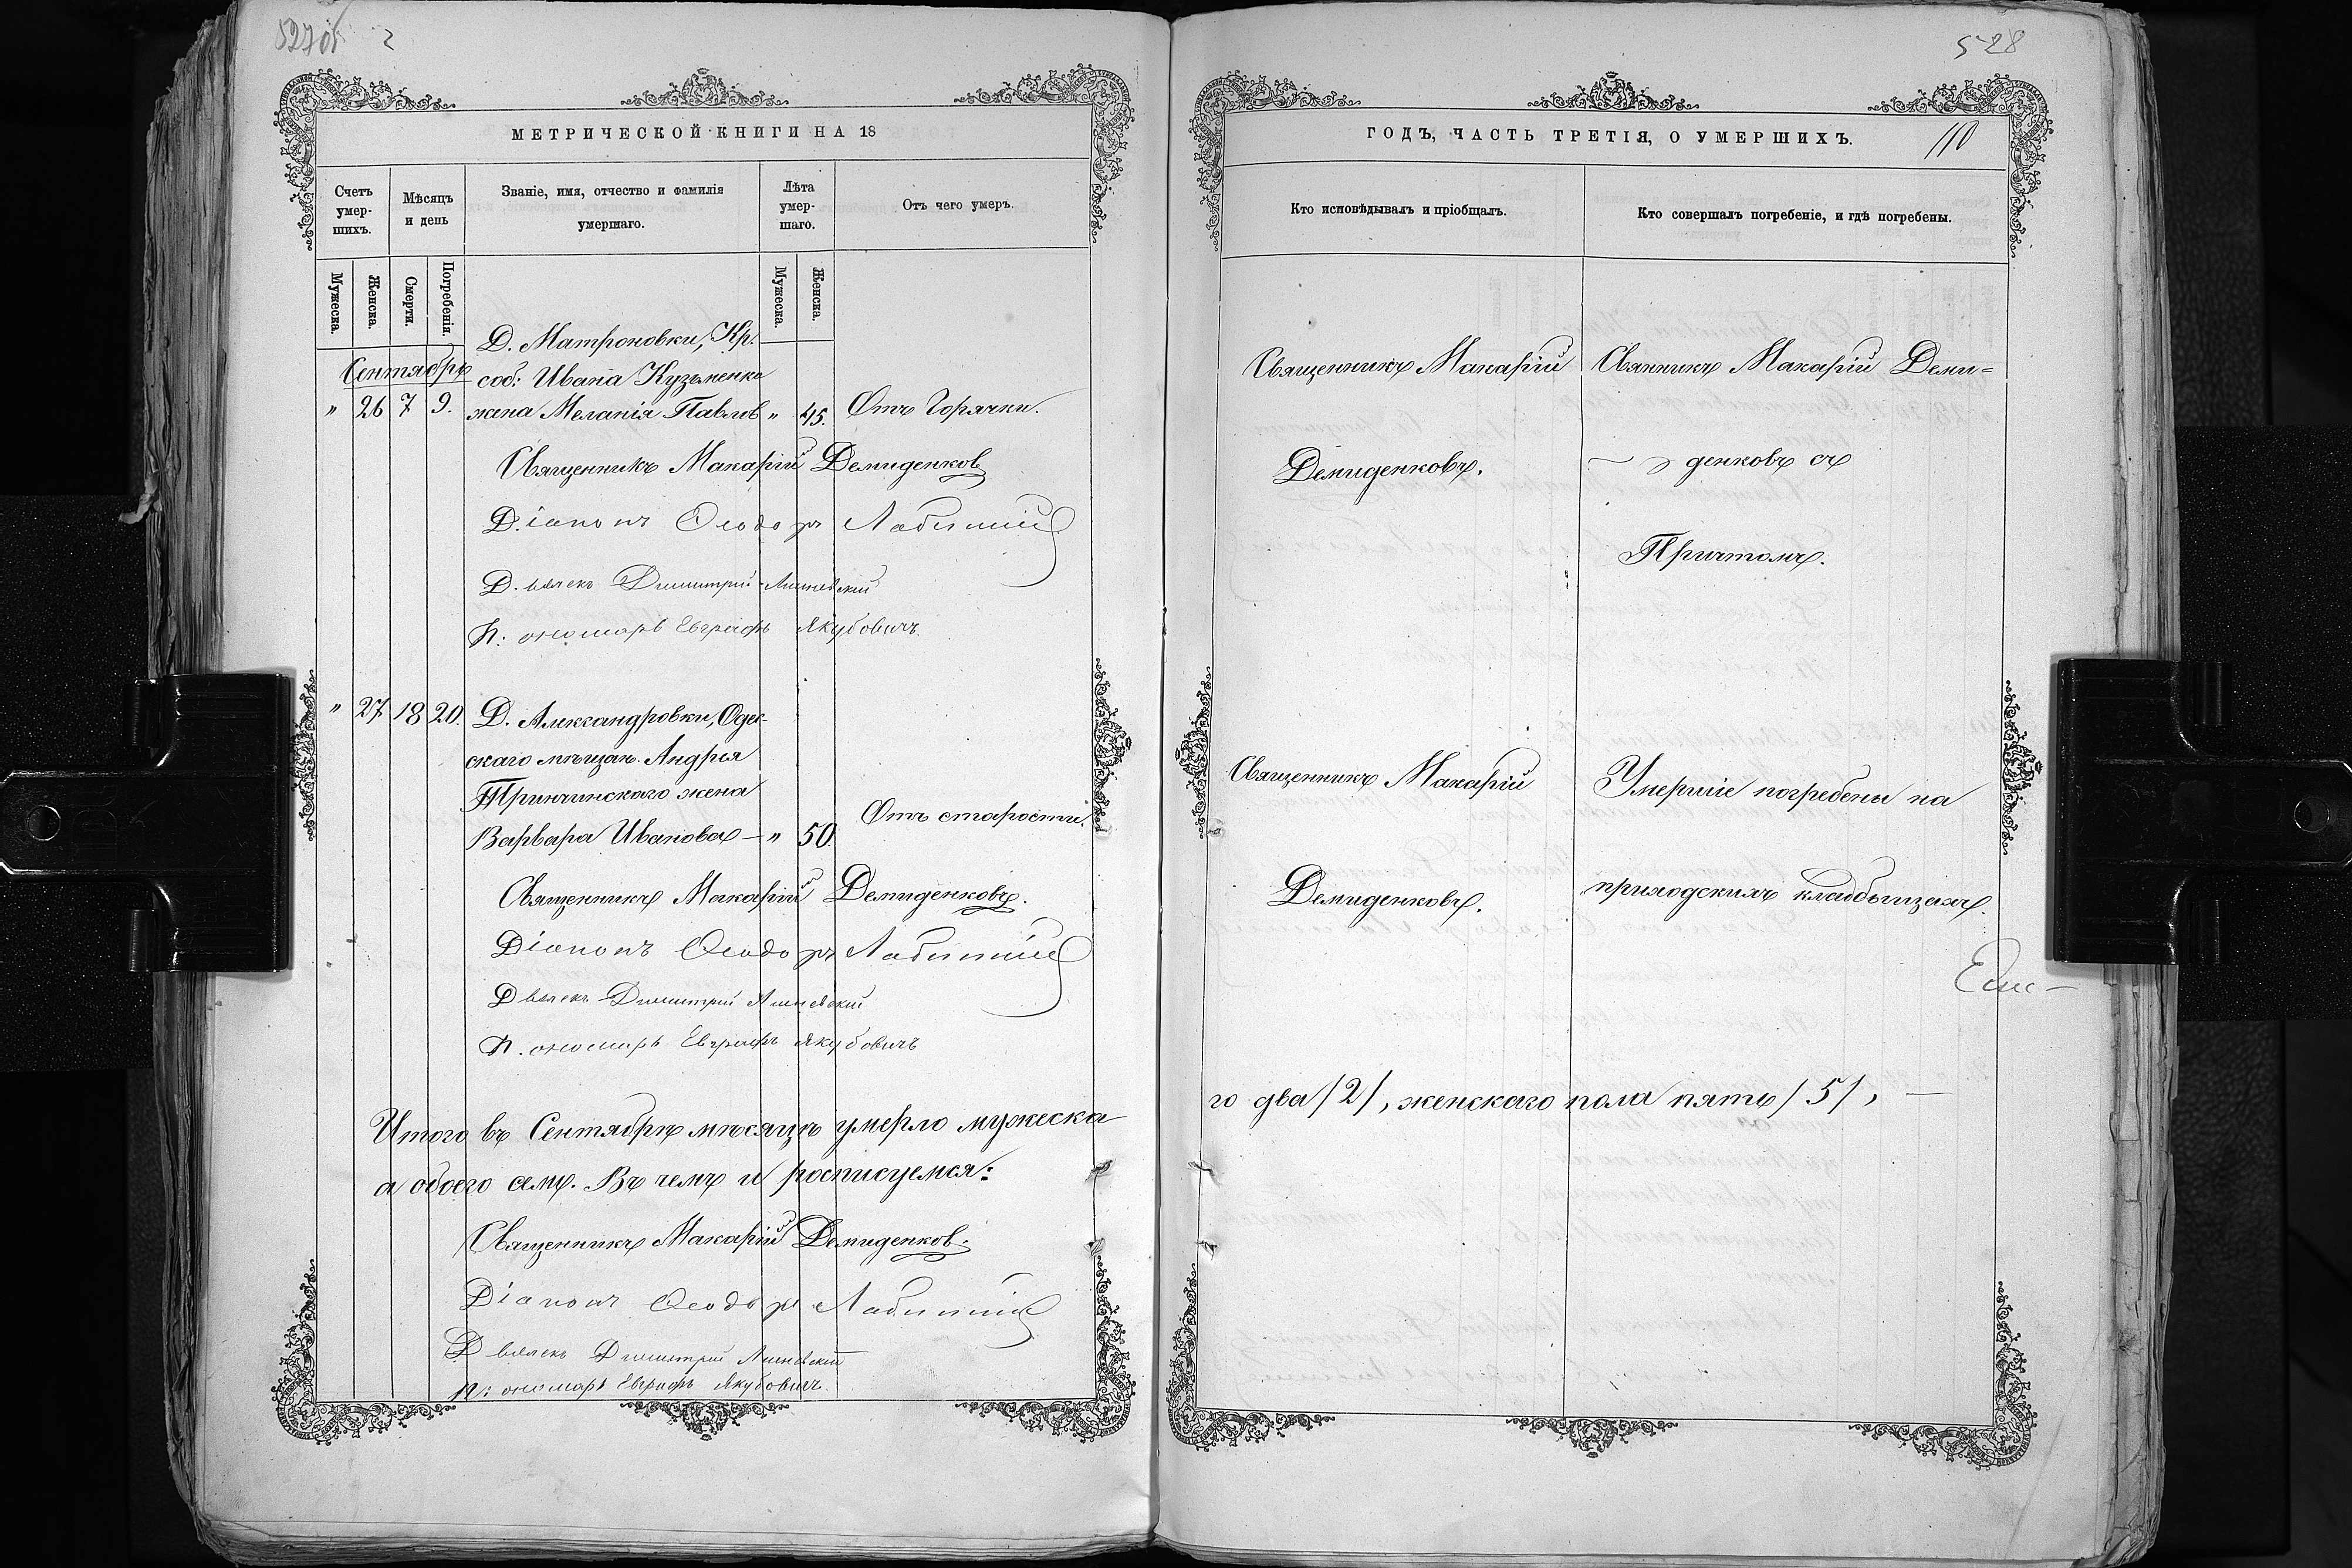 527об 2
МЕТРИЧЕСКОЙ КНИГИ НА 18
Счетъ умер-шихъ.
Мѣсяцъ и день
Званіе, имя, отчество и фамилія умершаго.
Лѣта умер-шаго.
Отъ чего умеръ.
Мужеска.
Женска.
Смерти.
Погребенія.
Мужеска.
Женска.
Д. Матроновки, Кр.
Сентябрь
соб: Ивана Кузьменка
" 26 7 9. жена Меланія Павлов " 45. Отъ Горячки.
Священникъ Макарій Демиденков
Діаконъ Ѳеодоръ
Д. ьячекъ Димитрій
П: ономарь Евграфъ Якубовичъ.
" 27 18 20. Д. Александровки, Одес-
скаго мѣщан. Андрея
Тринчинскаго жена
Варвара Иванова — " 50. Отъ старости.
Священникъ Макарій Демиденковъ.
Діаконъ Ѳеодоръ
Дьячекъ Димитрій
П. ономарь Евграфъ Якубовичъ
Итого въ Сентябрѣ мѣсяцѣ умерло мужеска
а обоего семь. Въ чемъ и росписуемся:
Священникъ Макарій Демиденков.
Діаконъ Ѳеодоръ
Дьячекъ Димитрій
П: ономарь Евграфъ Якубовичъ.
528
ГОДЪ, ЧАСТЬ ТРЕТІЯ, О УМЕРШИХЪ.
110
Кто исповѣдывалъ и пріобщалъ.
Кто совершалъ погребеніе, и гдѣ погребены.
Священникъ Макарій
Демиденковъ.
Свянникъ Макарій Деми=
денковъ съ
Причтомъ.
Священникъ Макарій
Демиденковъ.
Умершіе погребены на
приходскихъ кладбищахъ.
го два /2/, женскаго пола пять /5/, —